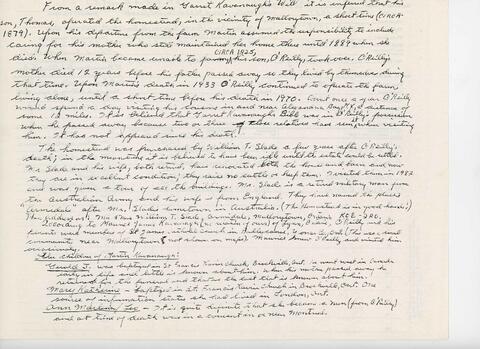 From a remark made in Garret Kavanagh's Will it is inferred that his
son, Thomas, operated the homestead, in the vicinity of Mallorytown, a short time (CIRCA
1879). Upon his departure from the farm Martin assumed the responsibility to include
caring for his mother who still maintained her home there until 1889 when she
CIRCA 1925,
died. When Martin became unable to farm, his son, O'Reilly, took over. O'Reilly's
mother died 12 years before his father passed away so they lived by themselves during
that time. Upon Martin's death in 1933 O'Reilly continued to operate the farm
living alone, until a short time before his death in 1970. About once a year O'Reilly
would spend a day visiting his cousins in and near Alexandria Bay, N.Y., a distance of
some 12 miles. It is believed that Garret Kavanagh's Bible was in O'Reilly's possession
when he passed away because two or three of close relatives had seen it when visiting
him. It has not appeared since his death.
The homestead was purchased by William T. Slade a few years after O'Reilly's
death; in the meantime it is believed to have been idle until the estate could be settled.
Mr. Slade and his wife, both retired, have restored both the house and barn and now
they are in excellent condition; they raise no cattle or keep them. I visited them in 1982
and was given a tour of the buildings. Mr. Slade is a retired military man from
the Australian Army and his wife is from England. They have named the place
after Mr. Slade's hometown in Australia. (The Homestead is in good hands!)
The address is: Mr & Mrs William T. Slade, Mallorytown, Ontario K0E-1R0.
According to Maurice James Kavanagh O'Reilly and his
parents were members of St. James Catholic Church in
community near Mallorytown, not shown on map). Maurice knew O'Reilly and visited him
occasionally.
The children of Martin Kavanagh:
Gerald J. was baptized St. Francis Xavier Church, Brockville, Ont. He went west in Canada
early in life and little is known about him; when his mother passed away he
returned for the funeral and that is the last that is known about him.
Mary Katherine - baptized in St. Francis Xavier Church in Brockville, Ont. One
source of information states she had lived in London, Ont.
Ann - It is quite definite that she became a Nun (from O'Reilly)
and at time of death was in a convent in or near Montreal.